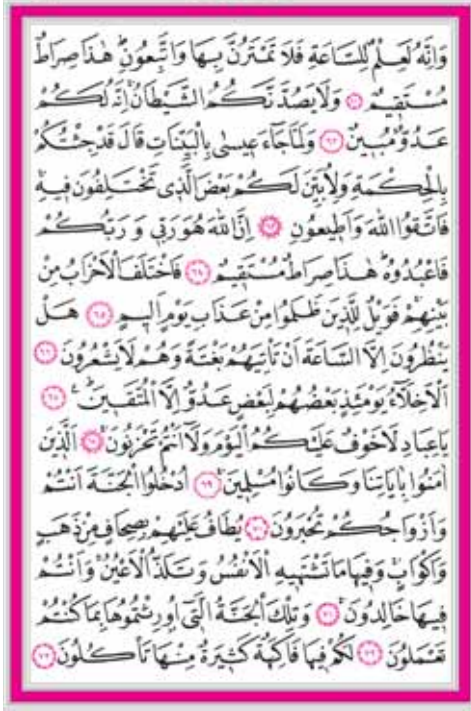 وَاِنَّهُ لَعِلْمٌ لِلسَّاعَةِ فَلَا تَمْتَرُنَّ بِهَا وَاتَّبِعُونِ هٰذَا صِرَاطٌ
مُسْتَقِيمٌ ﴿٦١﴾ وَلَا يَصُدَّنَّكُمُ الشَّيْطَانُ اِنَّهُ لَكُمْ
عَدُوٌّ مُبِينٌ ﴿٦٢﴾ وَلَمَّا جَاءَ عِيسٰى بِالْبَيِّنَاتِ قَالَ قَدْ جِئْتُكُمْ
بِالْحِكْمَةِ وَلِاُبَيِّنَ لَكُمْ بَعْضَ الَّذِي تَخْتَلِفُونَ فِيهِ
فَاتَّقُوا اللّٰهَ وَاَطِيعُونِ ﴿٦٣﴾ اِنَّ اللّٰهَ هُوَ رَبِّي وَرَبُّكُمْ
فَاعْبُدُوهُ هٰذَا صِرَاطٌ مُسْتَقِيمٌ ﴿٦٤﴾ فَاخْتَلَفَ الْاَحْزَابُ مِنْ
بَيْنِهِمْ فَوَيْلٌ لِلَّذِينَ ظَلَمُوا مِنْ عَذَابِ يَوْمٍ اَلِيمٍ ﴿٦٥﴾ هَلْ
يَنْظُرُونَ اِلَّا السَّاعَةَ اَنْ تَأْتِيَهُمْ بَغْتَةً وَهُمْ لَا يَشْعُرُونَ ﴿٦٦﴾
اَلْاَخِلَّاءُ يَوْمَئِذٍ بَعْضُهُمْ لِبَعْضٍ عَدُوٌّ اِلَّا الْمُتَّقِينَ ﴿٦٧﴾
يَاعِبَادِ لَا خَوْفٌ عَلَيْكُمُ الْيَوْمَ وَلَا اَنْتُمْ تَحْزَنُونَ ﴿٦٨﴾ اَلَّذِينَ
اٰمَنُوا بِاٰيَاتِنَا وَكَانُوا مُسْلِمِينَ ﴿٦٩﴾ اُدْخُلُوا الْجَنَّةَ اَنْتُمْ
وَاَزْوَاجُكُمْ تُحْبَرُونَ ﴿٧٠﴾ يُطَافُ عَلَيْهِمْ بِصِحَافٍ مِنْ ذَهَبٍ
وَاَكْوَابٍ وَفِيهَا مَا تَشْتَهِيهِ الْاَنْفُسُ وَتَلَذُّ الْاَعْيُنُ وَاَنْتُمْ
فِيهَا خَالِدُونَ ﴿٧١﴾ وَتِلْكَ الْجَنَّةُ الَّتِي اُورِثْتُمُوهَا بِمَا كُنْتُمْ
تَعْمَلُونَ ﴿٧٢﴾ لَكُمْ فِيهَا فَاكِهَةٌ كَثِيرَةٌ مِنْهَا تَأْكُلُونَ ﴿٧٣﴾